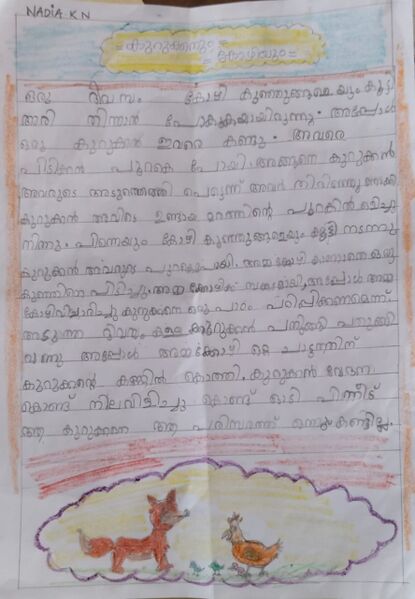 NADIA K N
കുറുക്കനും
കോഴിയും
ഒരു ദിവസം കോഴി കുഞ്ഞുങ്ങളെയും കൂട്ടി
അരി തിന്നാൻ പോകുകയായിരുന്നു. അപ്പോൾ
ഒരു കുറുകൻ ഇവരെ കണ്ടു. അവരെ
പിടിക്കാൻ പുറകെ പോയി. അങ്ങനെ കുറുക്കൻ
അവരുടെ അടുത്തെത്തി പെട്ടെന്ന് അവർ തിരിഞ്ഞു നോക്കി
കുറുകാൻ അവിടെ ഉണ്ടായ മരത്തിന്റെ പുറകിൽ ഒളിച്ചു
നിന്നു. പിന്നെയും കോഴി കുഞ്ഞുങ്ങളെയും കൂട്ടി നടന്നു
കുറുക്കൻ അവരുടെ പുറകെപോയി. അമ്മകോഴി കാണാതെ ഒരു
കുഞ്ഞിനെ പിടിച്ചു. അമ്മ കോഴിക്ക് സങ്കടമായി, അപ്പോൾ അമ്മ
കോഴിവിചാരിച്ചു കുറുക്കനെ ഒരു പാഠം പഠിപ്പിക്കണമെന്ന്.
അടുത്ത ദിവസം കുറുക്കൻ പതുങ്ങി പതുങ്ങി
വന്നു അപ്പോൾ അമ്മക്കോഴി ഒറ്റ ചാട്ടത്തിന്
കുറുക്കന്റെ കണ്ണിൽ കൊത്തി. കുറുക്കൻ വേദന
കൊണ്ട് നിലവിളിച്ചു കൊണ്ട് ഓടി പിന്നീട്
ആ കുറുക്കനെ ആ പരിസരത്ത് ഒന്നും കണ്ടില്ല.